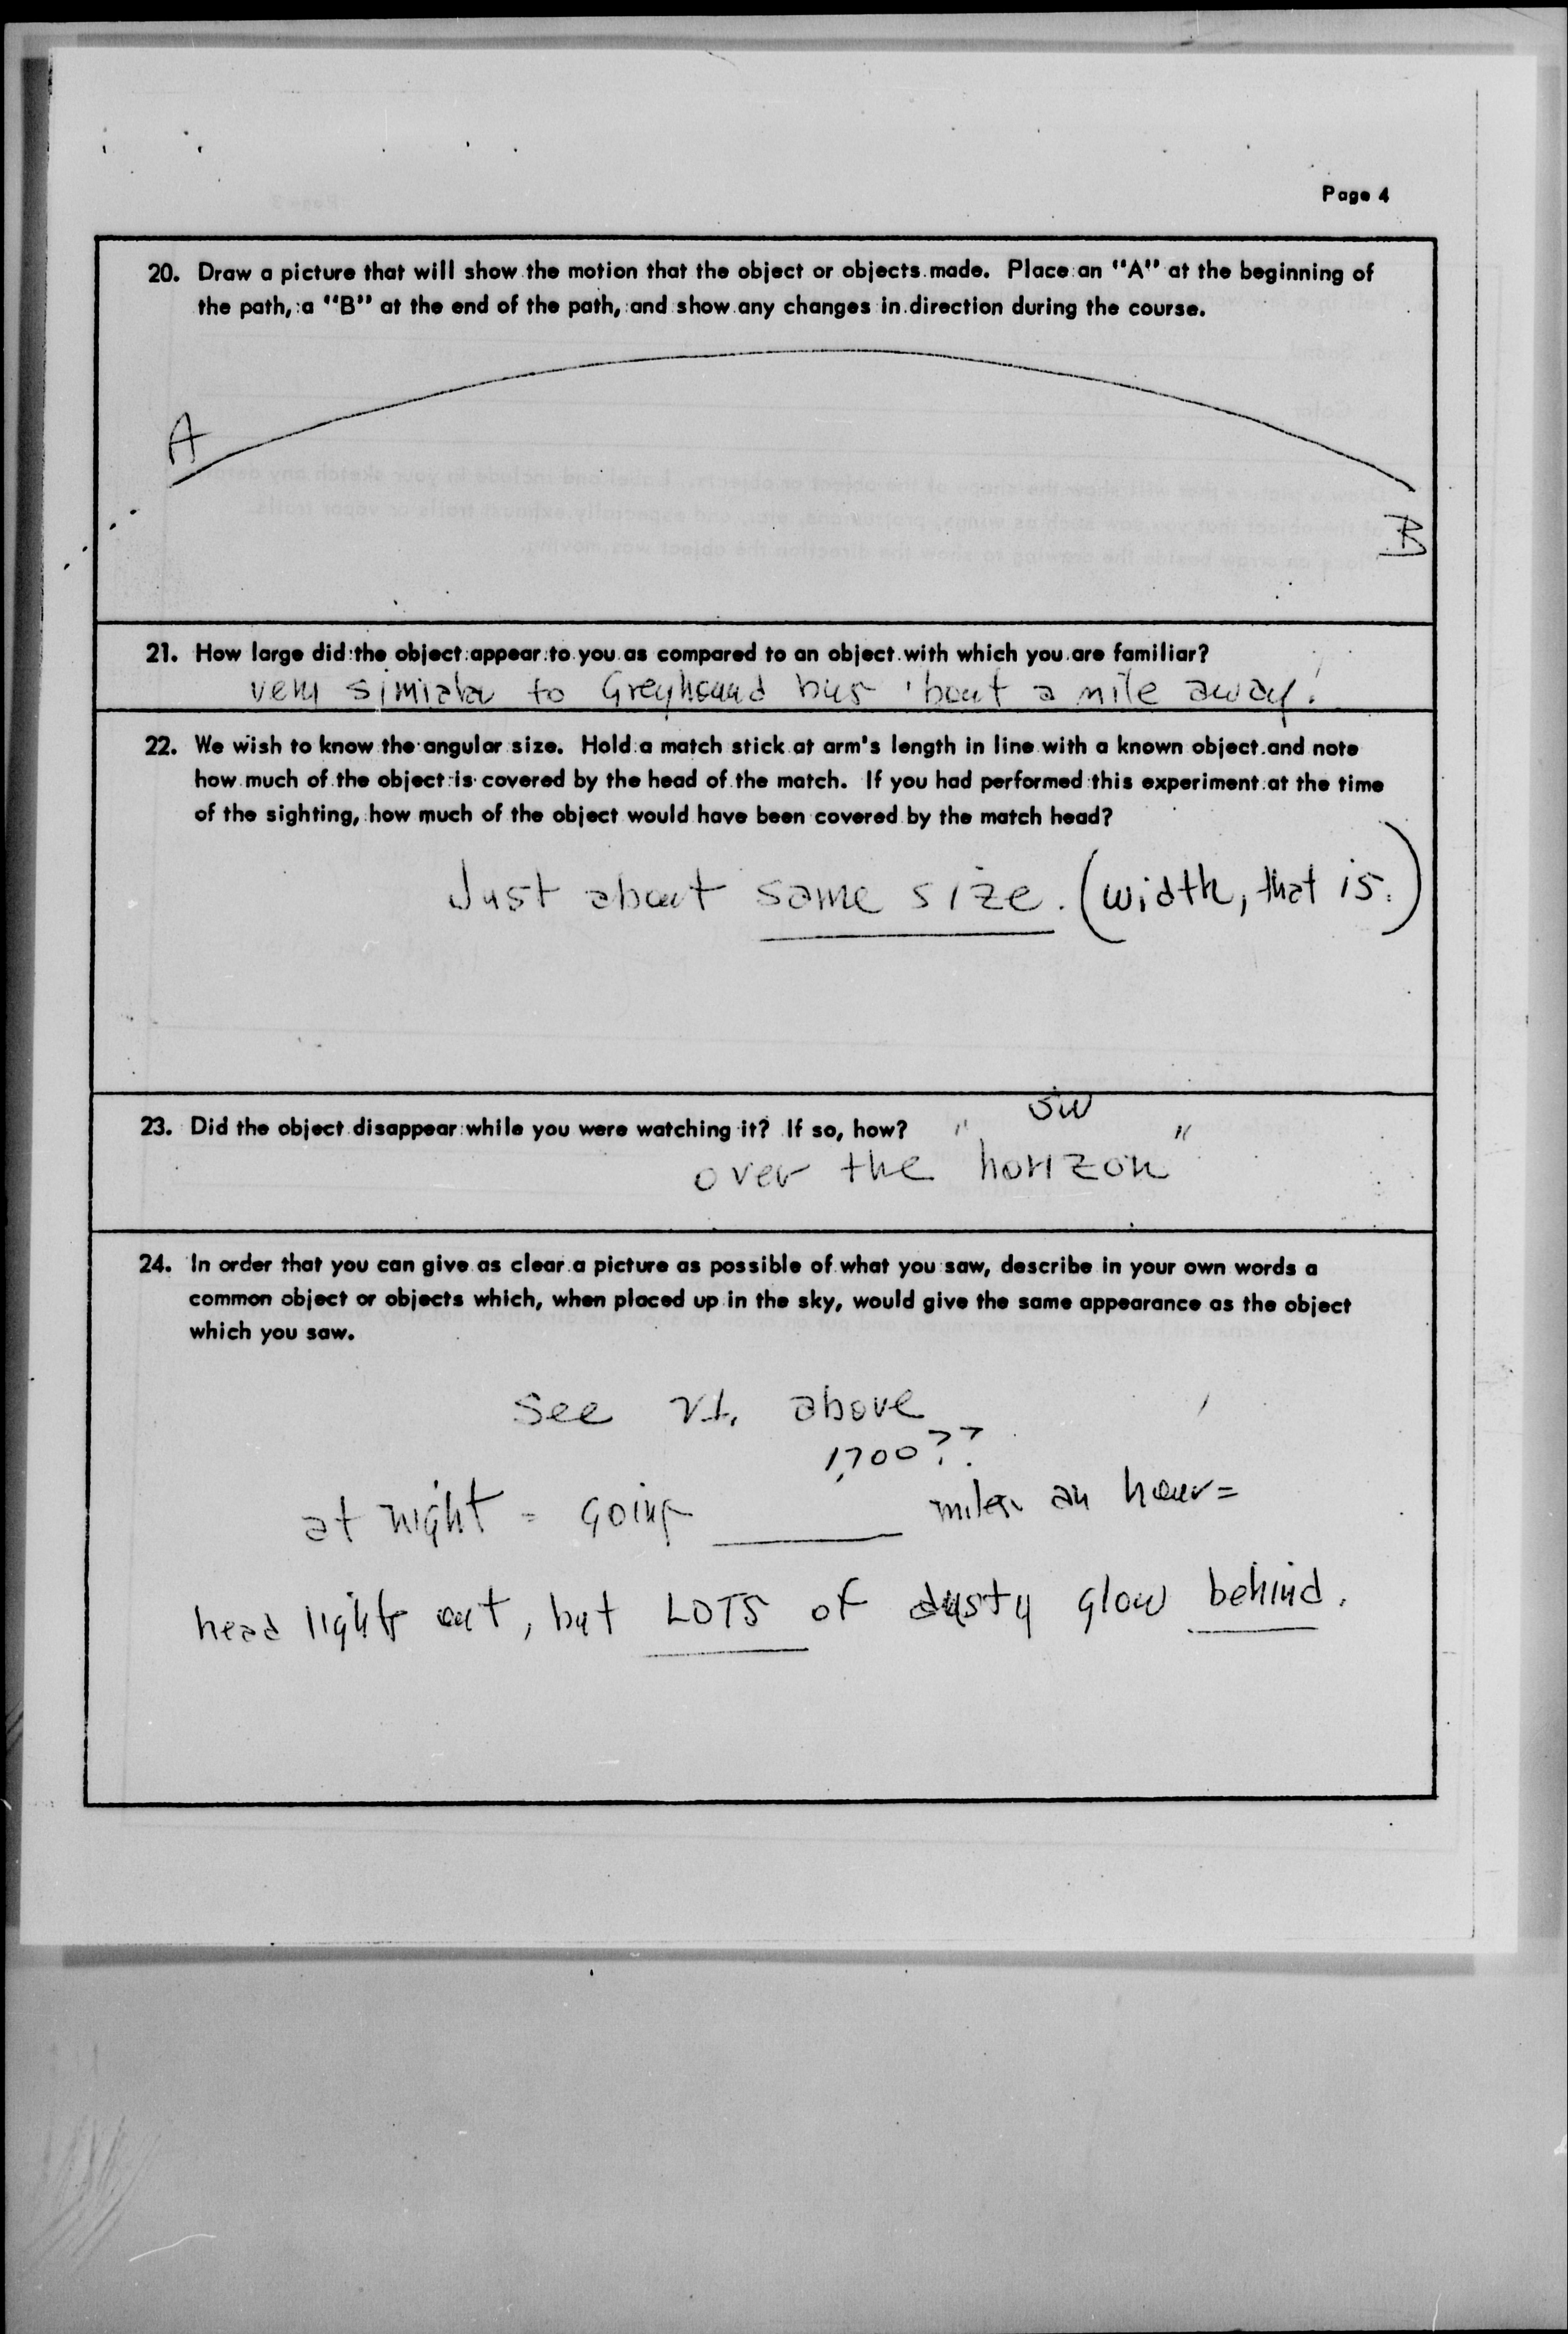 Page 4
20. Draw a picture that will show the motion that the object or objects made. Place an "A" at the beginning of
the path, a "B" at the end of the path, and show any changes in direction during the course.
A
B
21. How large did the object appear to you as compared to an object with which you are familiar?
very similar to Greyhound bus 'bout a mile away!
22. We wish to know the angular size. Hold a match stick at arm's length in line with a known object and note
how much of the object is covered by the head of the match. If you had performed this experiment at the time
of the sighting, how much of the object would have been covered by the match head?
Just about same size. (width, that is.)
23. Did the object disappear while you were watching it? If so, how?
SW
over the "horizon"
24. In order that you can give as clear a picture as possible of what you saw, describe in your own words a
common object or objects which, when placed up in the sky, would give the same appearance as the object
which you saw.
See 21. above
1,700??
at night = going ____ miles an hour =
head lights out, but LOTS of dusty glow behind.